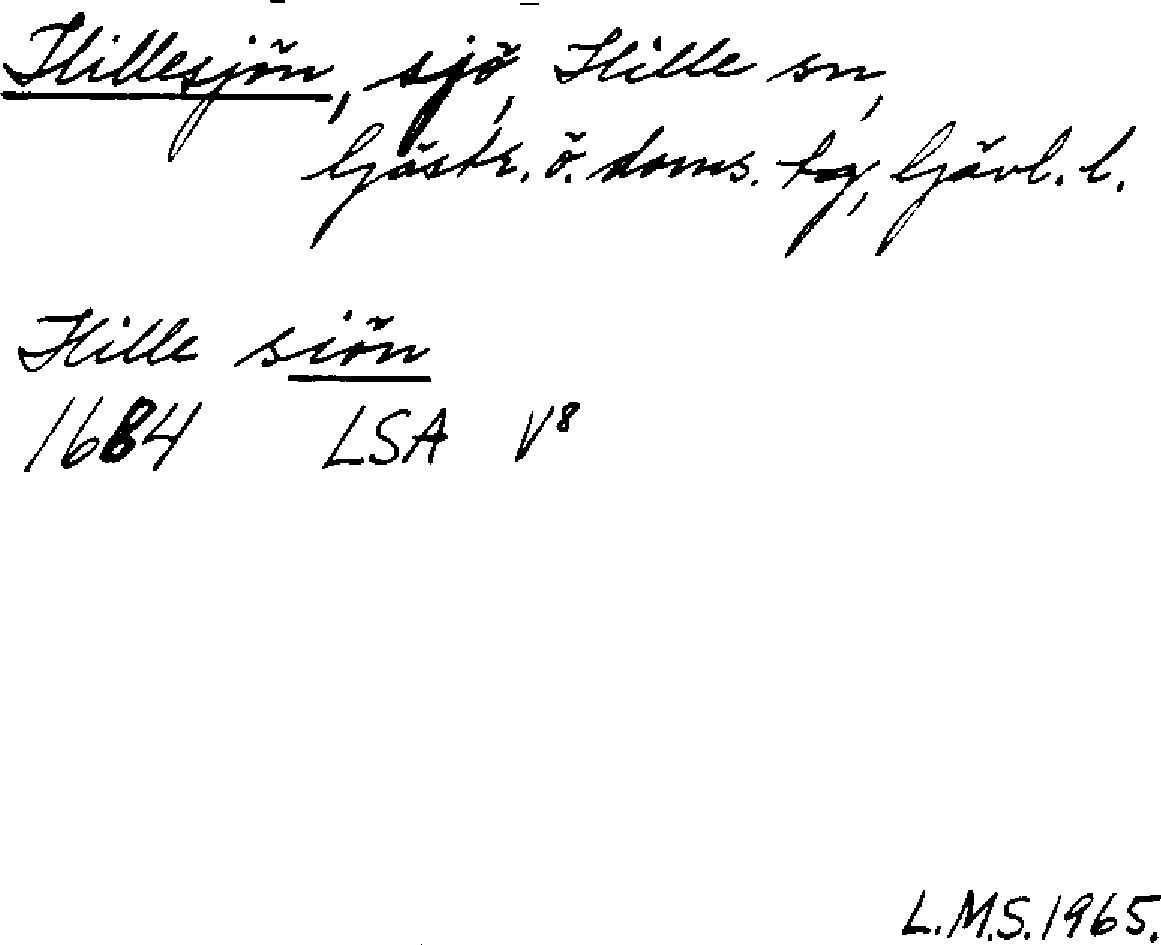 Hillesjön, sjö, Hille sn,
Gästr. ö. doms. tg, Gävl. l.
Hille siön
1684 LSA V8
L.M.S. 1965.